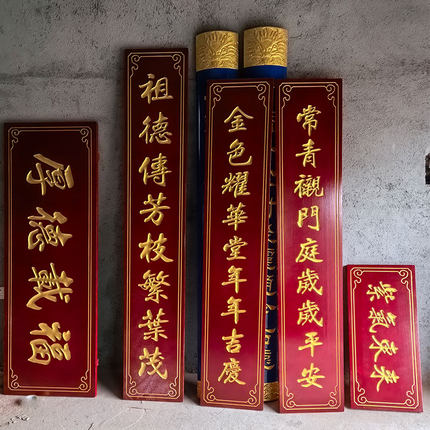 厚德載福
祖德傳芳枝繁葉茂
金色耀華堂年年吉慶
常青觀門庭歲歲平安
紫氣東來